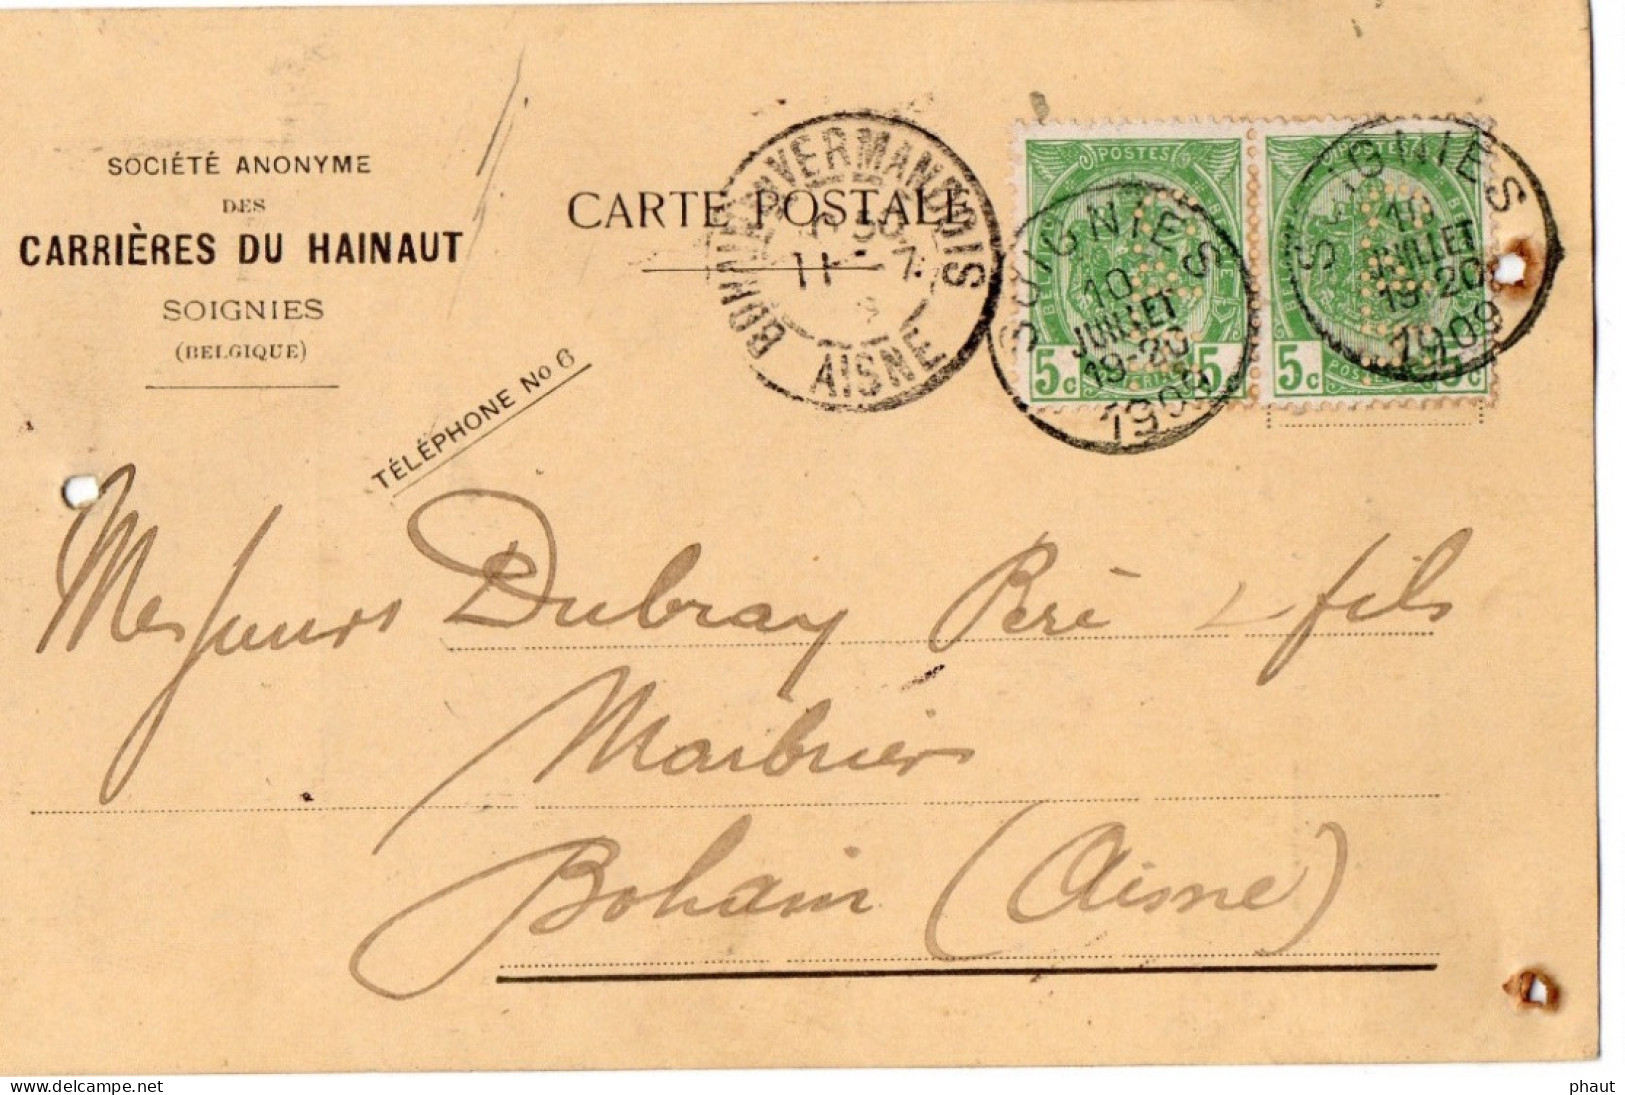 SOCIÉTÉ ANONYME
DES
CARRIÈRES DU HAINAUT
SOIGNIES
(BELGIQUE)
TÉLÉPHONE No 6
CARTE POSTALE
VERMANDOIS
11 - 7
AISNE
POSTES
5c 5
SOIGNIES
10
JUILLET
19-20
1909
5c 5c
SOIGNIES
10
JUILLET
19-20
1909
Messieurs Dubray Père & fils
Marbriers
Bohain (Aisne)
phaut